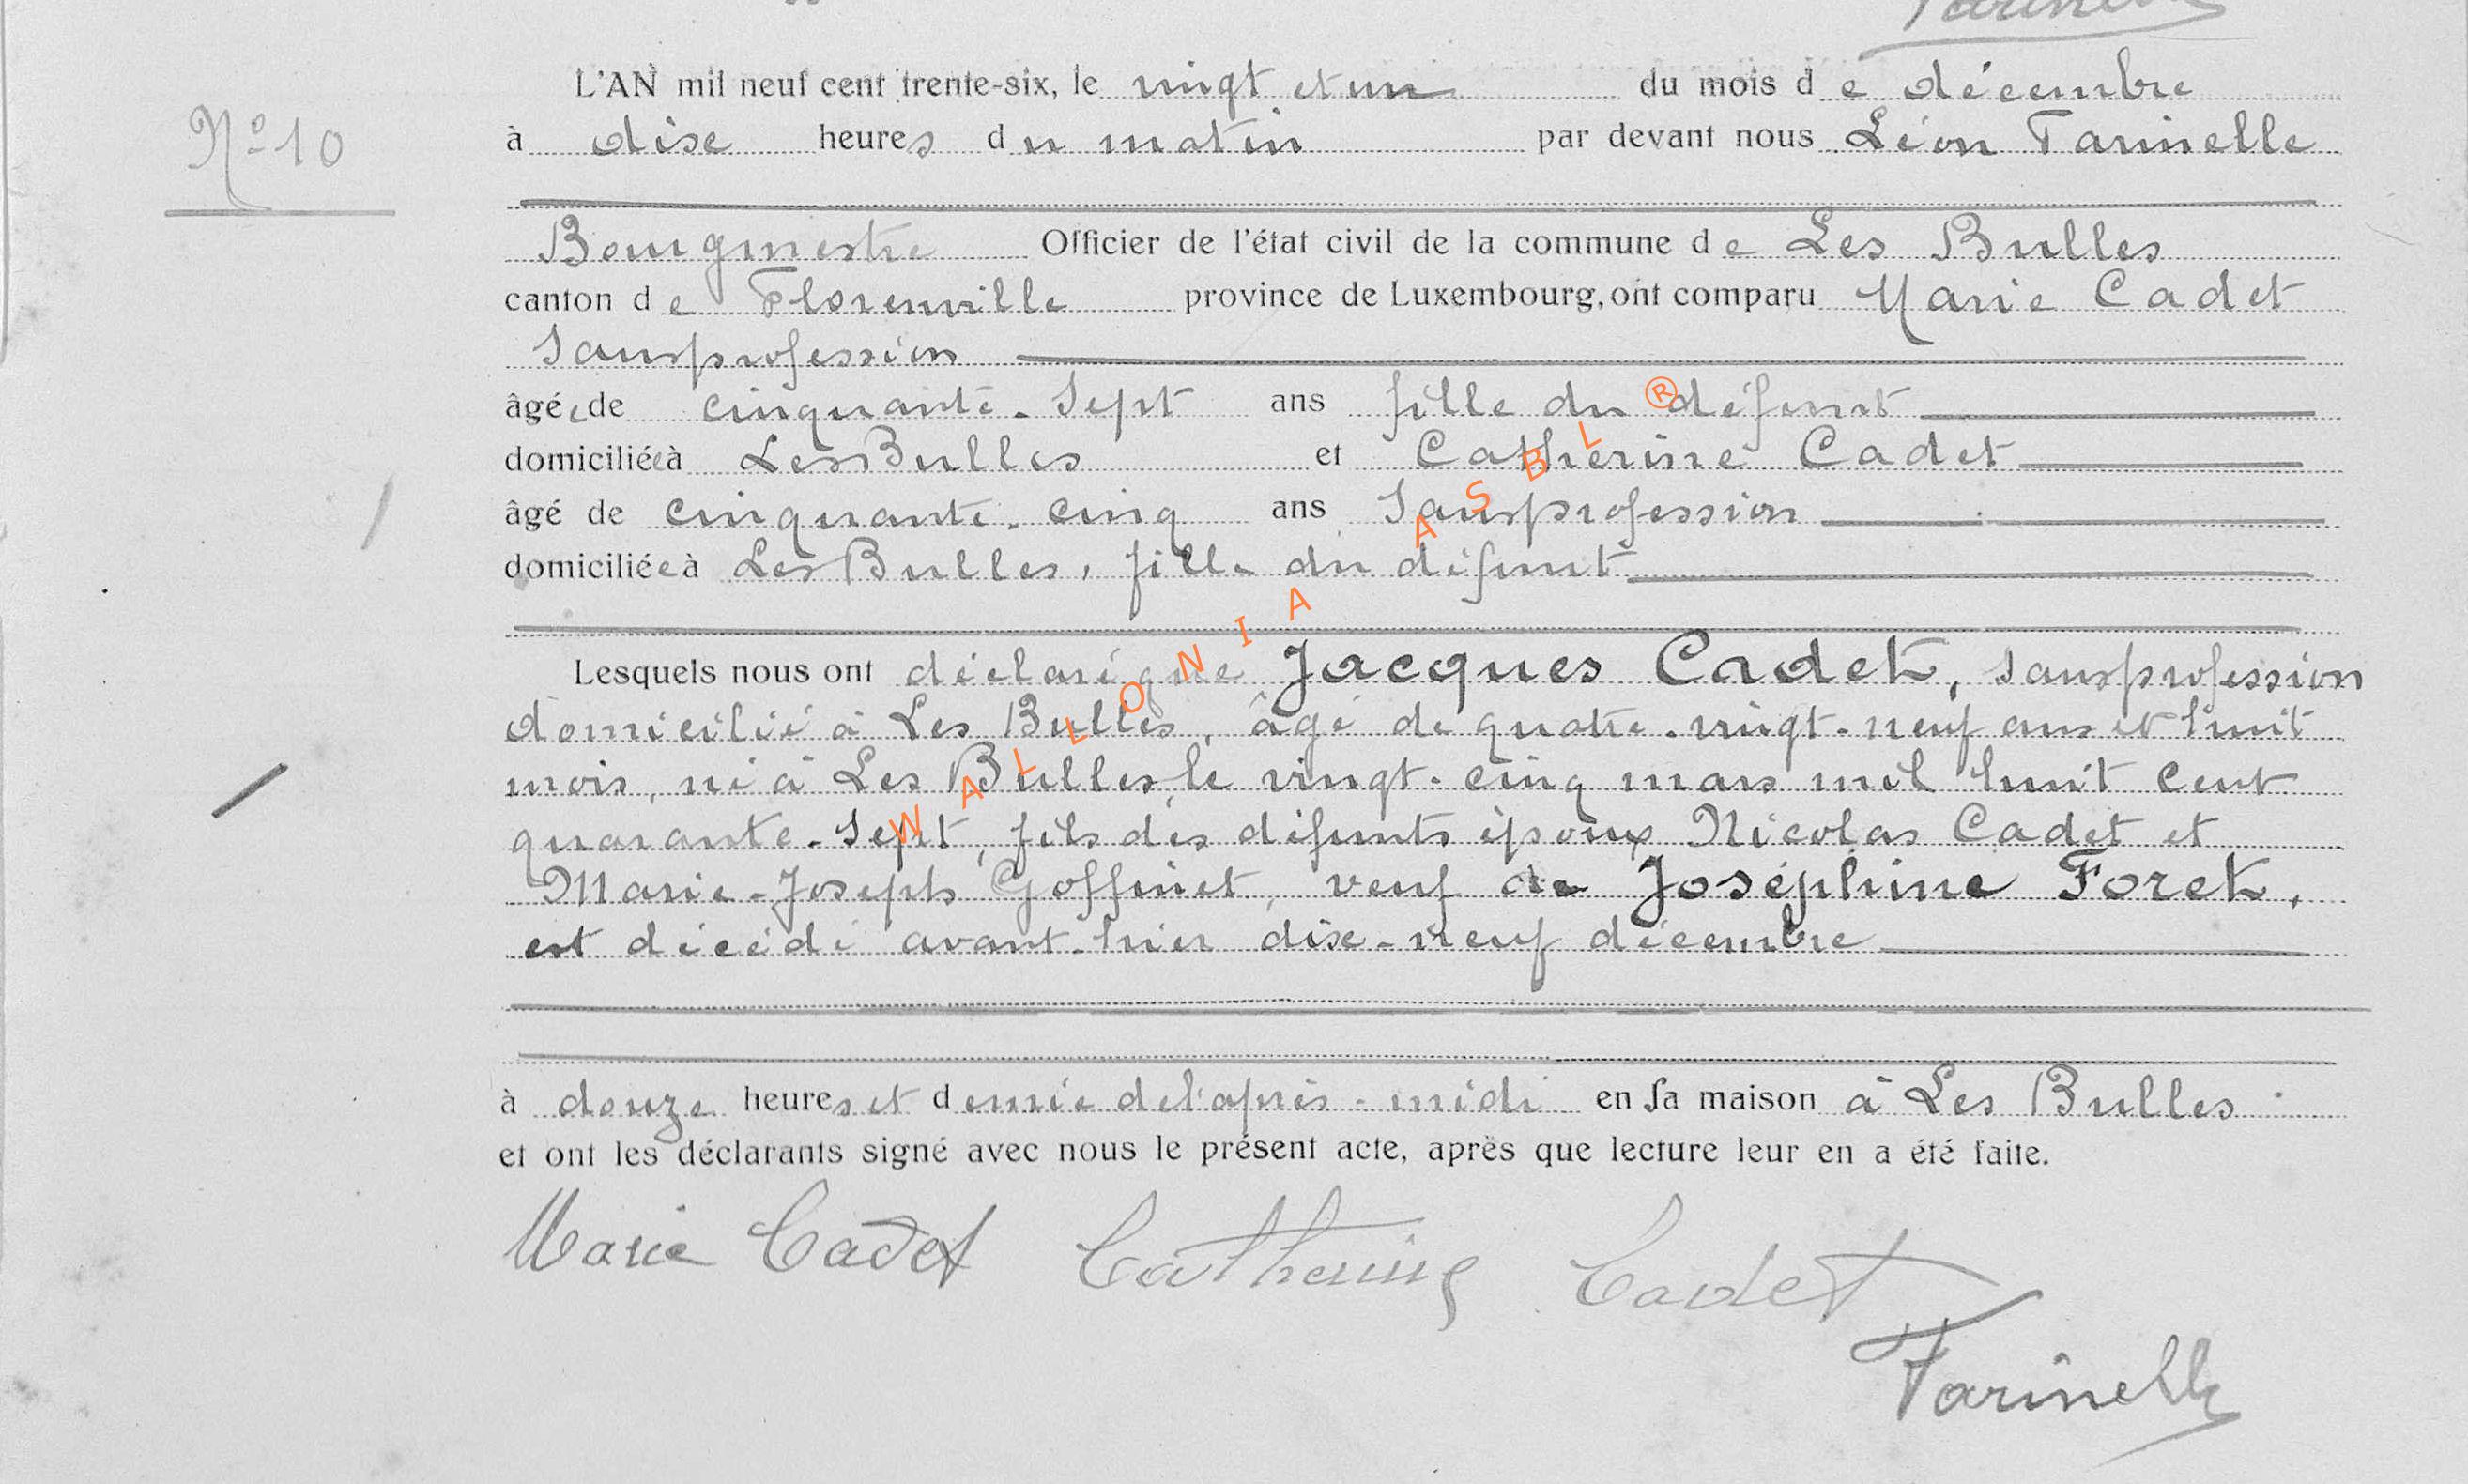 Farinelle
L'AN mil neuf cent trente-six, le vingt et un du mois de décembre
N° 10
à dix heures du matin par devant nous Léon Farinelle
Bourgmestre Officier de l'état civil de la commune de Les Bulles
canton de Florenville province de Luxembourg, ont comparu Marie Cadet
Sans profession
âgée de cinquante-sept ans fille du défunt
domiciliée à Les Bulles et Catherine Cadet
âgé de cinquante-cinq ans Sans profession
domiciliée à Les Bulles, fille du défunt
Lesquels nous ont déclaré que Jacques Cadet, sans profession
domicilié à Les Bulles, âgé de quatre-vingt-neuf ans et huit
mois, né à Les Bulles, le vingt-cinq mars mil huit cent
quarante-sept, fils des défunts époux Nicolas Cadet et
Marie-Joseph Goffinet, veuf de Joséphine Foret,
est décédé avant-hier dix-neuf décembre
à douze heures et demie de l'après-midi en sa maison à Les Bulles
et ont les déclarants signé avec nous le présent acte, après que lecture leur en a été faite.
Marie Cadet Catherine Cadet
Farinelle
WALLONIA ASBL ®